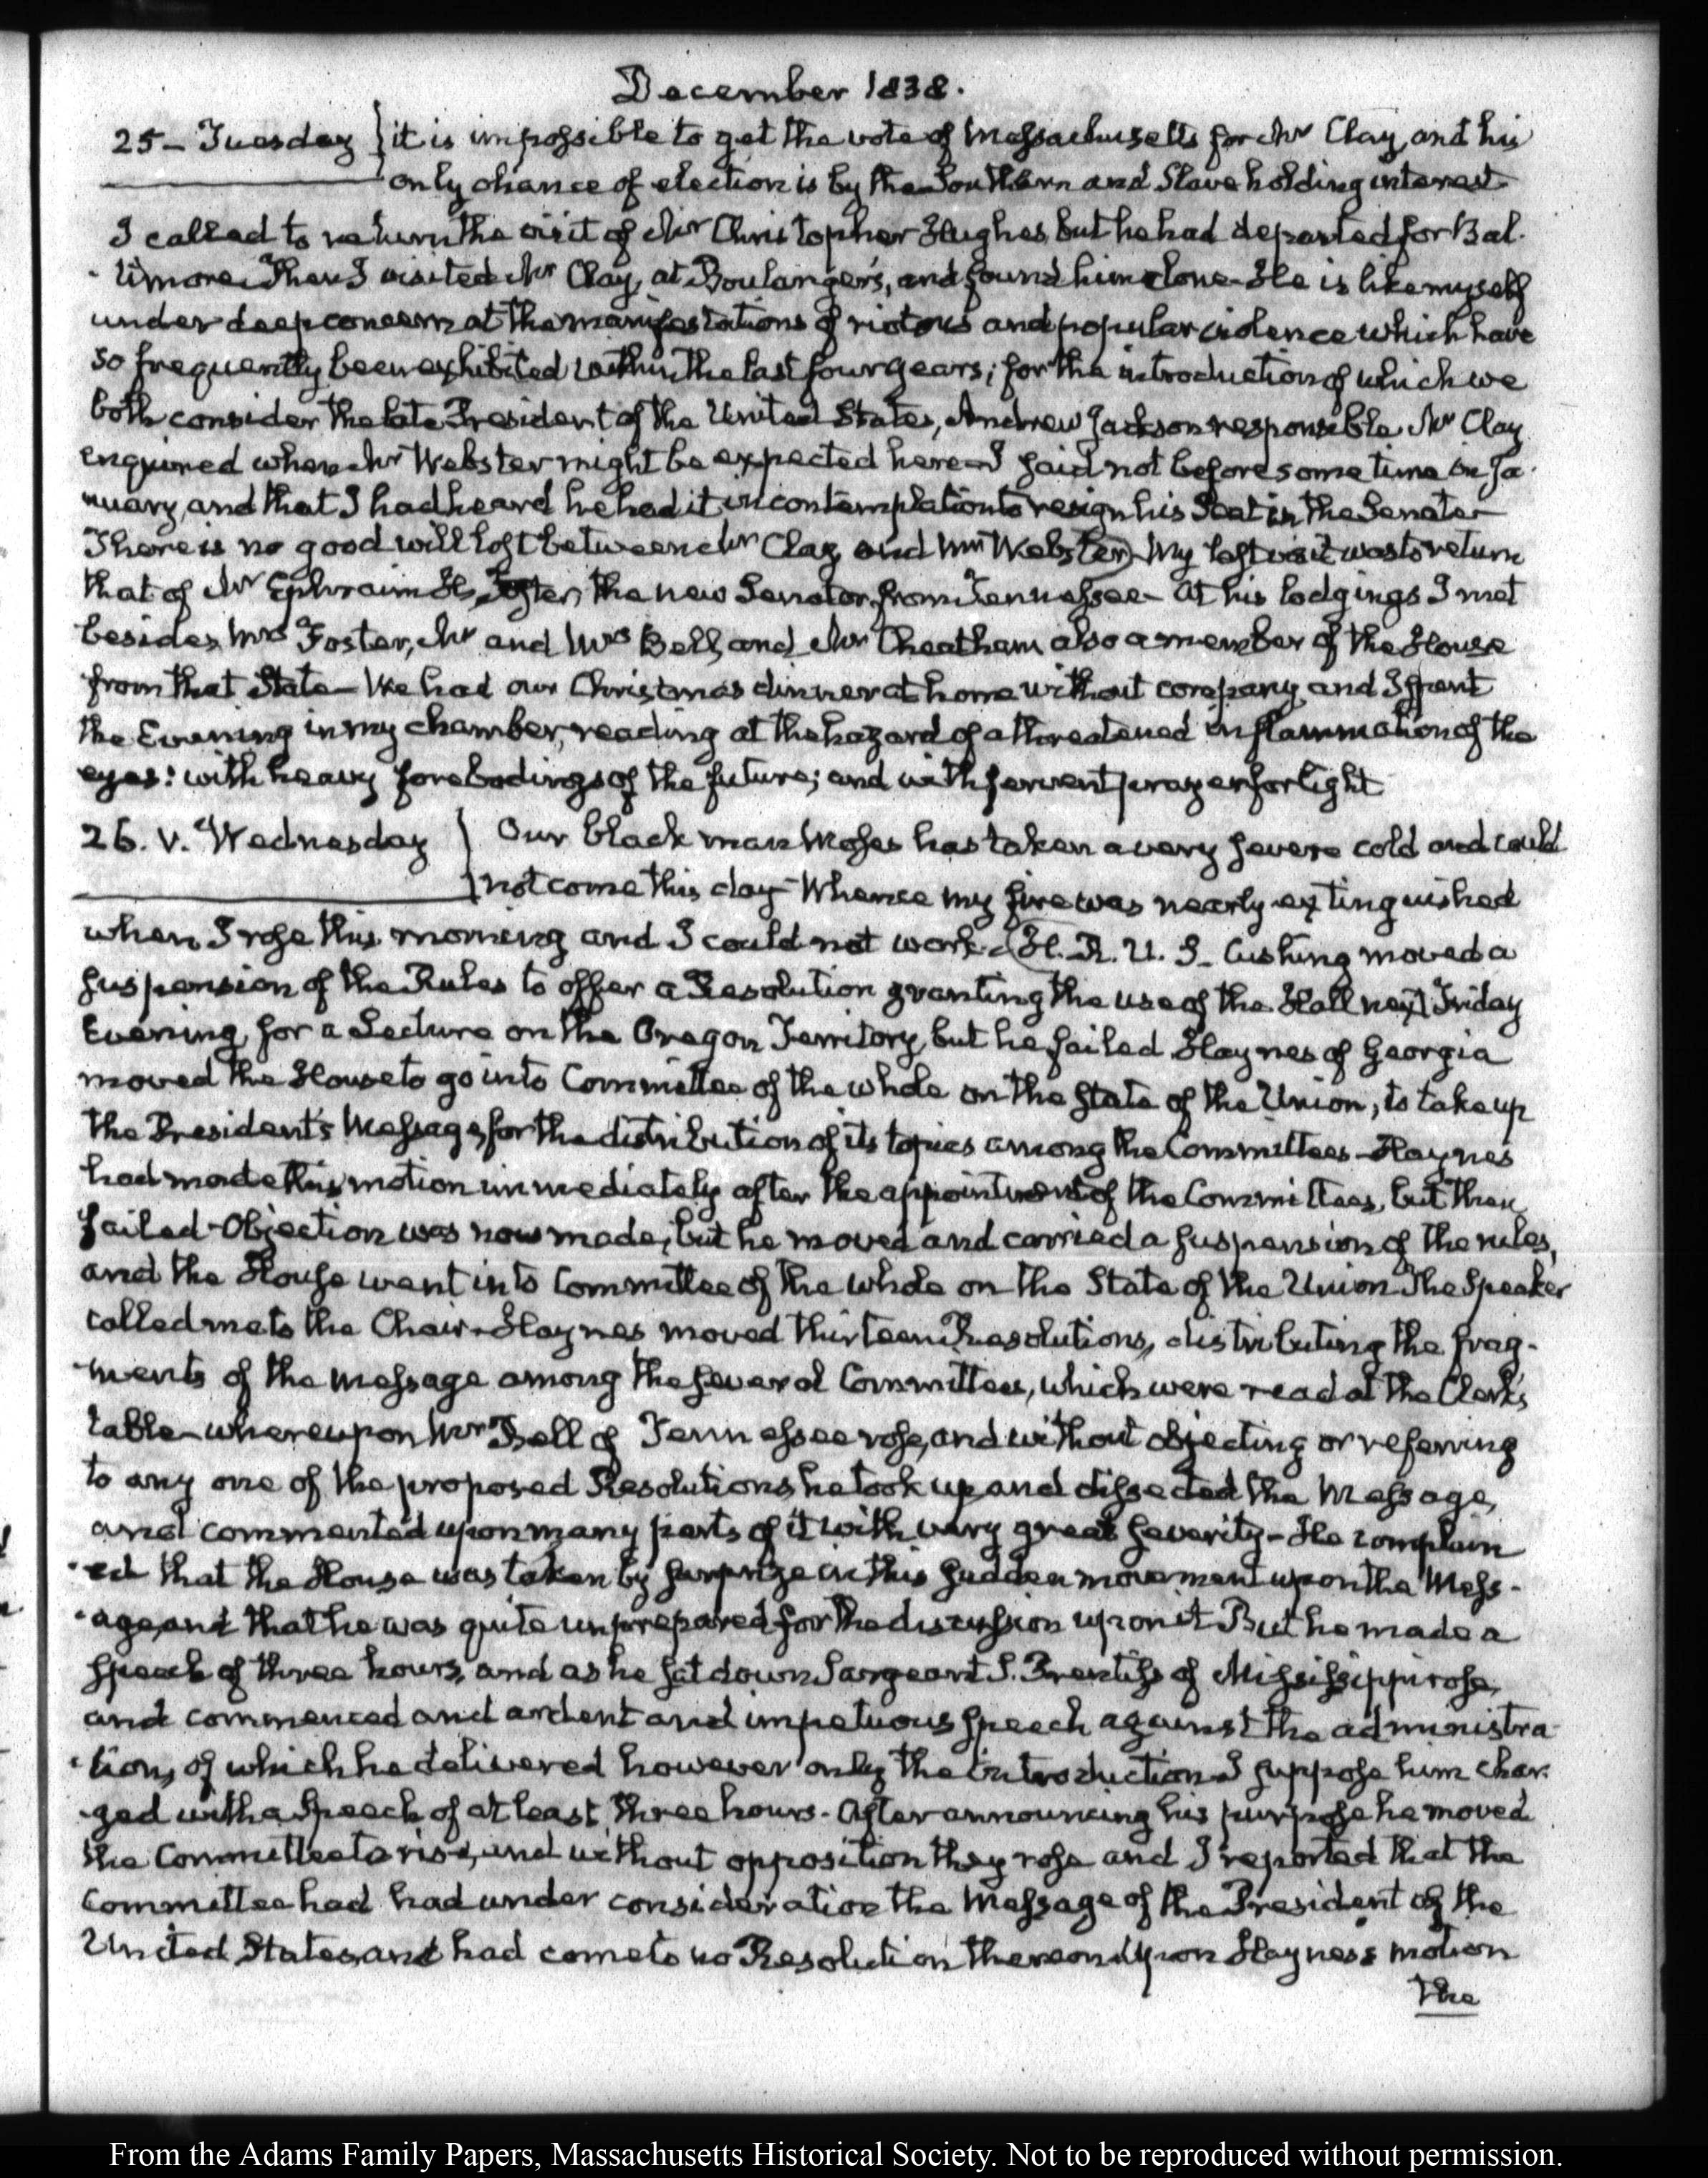 December 1838.
25 - Tuesday } it is impossible to get the vote of Massachusetts for Mr Clay, and his
only chance of election is by the Southern and Slave holding interest
I called to return the visit of Mr Christopher Hughes, but he had departed for Bal-
-timore. Then I visited Mr Clay, at Boulanger's, and found him alone - He is like myself
under deep concern at the manifestations of riotous and popular violence which have
so frequently been exhibited within the last four years; for the introduction of which we
both consider the late President of the United States, Andrew Jackson responsible. Mr Clay
enquired when Mr Webster might be expected here - I said not before some time in Ja-
nuary, and that I had heard he had it in contemplation to resign his Seat in the Senate -
There is no good will lost between Mr Clay and Mr Webster) My last visit was to return
that of Mr Ephraim H. Foster, the new Senator from Tennessee - At his lodgings I met
besides Mrs Foster, Mr and Mrs Bell, and Mr Cheatham also a member of the House
from that State - We had our Christmas dinner at home without company and I spent
the Evening in my chamber, reading at the hazard of a threatened inflammation of the
eyes: with heavy forebodings of the future; and with fervent prayer for light
26. V. Wednesday } Our black man Moses has taken a very severe cold and could
not come this day - Whence my fire was nearly extinguished
when I rose this morning and I could not work - (H. R. U. S - Cushing moved a
suspension of the Rules to offer a Resolution granting the use of the Hall next Friday
Evening, for a Lecture on the Oregon Territory, but he failed Haynes of Georgia
moved the House to go into Committee of the whole on the state of the Union, to take up
the President's Message, for the distribution of its topics among the Committees - Haynes
had made this motion immediately after the appointment of the Committees, but then
failed - Objection was now made; but he moved and carried a suspension of the rules,
and the House went into Committee of the Whole on the State of the Union The Speaker
called me to the Chair - Haynes moved thirteen Resolutions, distributing the frag-
-ments of the message among the several Committees, which were read at the Clerk's
table - whereupon Mr Bell of Tennessee rose, and without objecting or referring
to any one of the proposed Resolutions he took up and dissected the Message,
and commented upon many parts of it with very great severity - He complain
-ed that the House was taken by surprize in this sudden movement upon the Mess-
-age, and that he was quite unprepared for the discussion upon it But he made a
speech of three hours, and as he sat down Sargeant S. Prentiss of Mississippi rose,
and commenced and ardent and impetuous speech against the administra-
-tion, of which he delivered however only the introduction I suppose him char-
-ged with a speech of at least three hours - After announcing his purpose he moved
the Committee to rise, and without opposition they rose and I reported that the
Committee had had under consideration the Message of the President of the
United States, and had come to no Resolution thereon Upon Haynes's motion
the
From the Adams Family Papers, Massachusetts Historical Society. Not to be reproduced without permission.